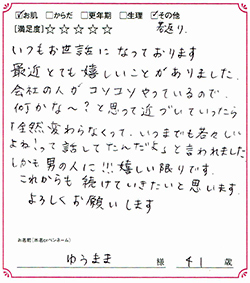 ☑お肌 □からだ □更年期 □生理 ☑その他
[満足度]☆☆☆☆☆ 若返り.
いつもお世話になっております
最近とても嬉しいことがありました.
会社の人がコソコソやっているので、
何かな〜?と思って近づいていったら
「全然変わらなくって、いつまでも若々しい
よね!って話してたんだよ」と言われました
しかも男の人に!!!嬉しい限りです.
これからも続けていきたいと思います.
よろしくお願いします
お名前(本名orペンネーム)
ゆうまま 様 41 歳